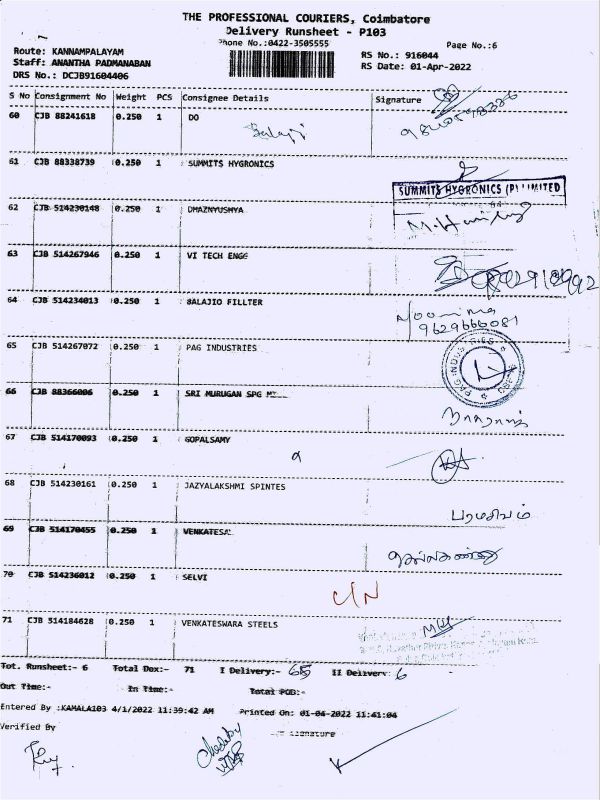 THE PROFESSIONAL COURIERS, Coimbatore
Delivery Runsheet - P103
Phone No.:0422-3505555
Page No.:6
Route: KANNAMPALAYAM
RS No.: 916044
Staff: ANANTHA PADMANABAN
RS Date: 01-Apr-2022
DRS No.: DCJB91604406
S No Consignment No Weight PCS Consignee Details Signature
60 CJB 88241618 0.250 1 DO
Balaji
61 CJB 88338739 0.250 1 SUMMITS HYGRONICS
SUMMITS HYGRONICS (P) LIMITED
62 CJB 514230148 0.250 1 DHAZNYUSHYA
63 CJB 514267946 0.250 1 VI TECH ENGG
64 CJB 514234013 0.250 1 BALAJIO FILLTER
9629666081
65 CJB 514267072 0.250 1 PAG INDUSTRIES
PAG INDUSTRIES
66 CJB 88366006 0.250 1 SRI MURUGAN SPG
நாகராஜ்
67 CJB 514170093 0.250 1 GOPALSAMY
68 CJB 514230161 0.250 1 JAZYALAKSHMI SPINTES
பரமசிவம்
69 CJB 514170455 0.250 1 VENKATESA
செல்லகண்ணு
70 CJB 514236012 0.250 1 SELVI
C/N
71 CJB 514184628 0.250 1 VENKATESWARA STEELS
Tot. Runsheet:- 6 Total Dox:- 71 I Delivery:- 65 II Delivery: 6
Out Time:- In Time:- Total POD:-
Entered By :KAMALA103 4/1/2022 11:39:42 AM Printed On: 01-04-2022 11:41:04
Verified By
Signature